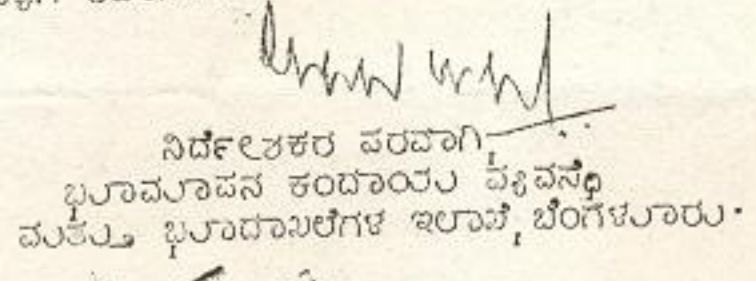 ನಿರ್ದೇಶಕರ ಪರವಾಗಿ,
ಭೂಮಾಪನ ಕಂದಾಯ ವ್ಯವಸ್ಥೆ
ಮತ್ತು ಭೂದಾಖಲೆಗಳ ಇಲಾಖೆ, ಬೆಂಗಳೂರು.